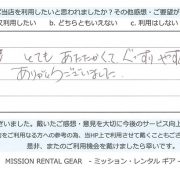 ご当店を利用したいと思われましたか？その他感想・ご要望が
利用したい　b. どちらともいえない　c. 利用はしない
とても あたたかくて ぐっすりやす
ありがとうございました。
ざいました。戴いたご感想・意見を大切に今後のサービス向上
なられる方への参考の為、当HP上で利用させて戴くことがご
是非、またのご利用機会を戴けましたら幸いです。
MISSION RENTAL GEAR - ミッション・レンタル ギア -